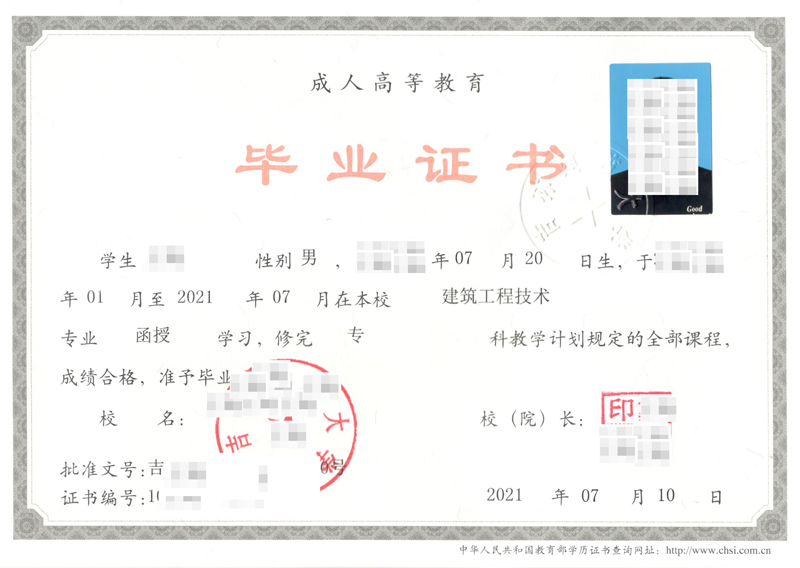 成人高等教育
毕业证书
Good
学生 性别 男 ， 年 07 月 20 日生，于
年 01 月至 2021 年 07 月在本校 建筑工程技术
专业 函授 学习，修完 专 科教学计划规定的全部课程，
成绩合格，准予毕业
校 名： 大学 校（院）长： 印
批准文号:吉 号
证书编号:10
2021 年 07 月 10 日
中华人民共和国教育部学历证书查询网址：http://www.chsi.com.cn